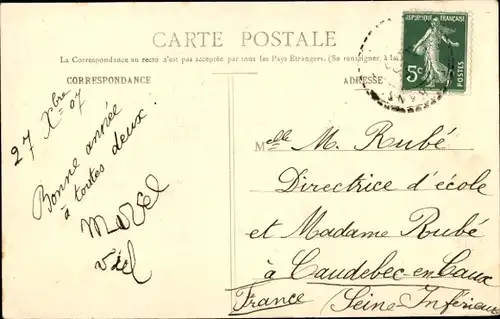 CARTE POSTALE
La Correspondance au recto n'est pas acceptée par tous les Pays Étrangers. (Se renseigner, à la
CORRESPONDANCE
ADRESSE
RÉPUBLIQUE FRANÇAISE
5c
POSTES
27 Xbre 07
Bonne année
à toutes deux.
Melle M. Rubé
Directrice d'école
et Madame Rubé
à Caudebec-en-Caux
France (Seine-Inférieure